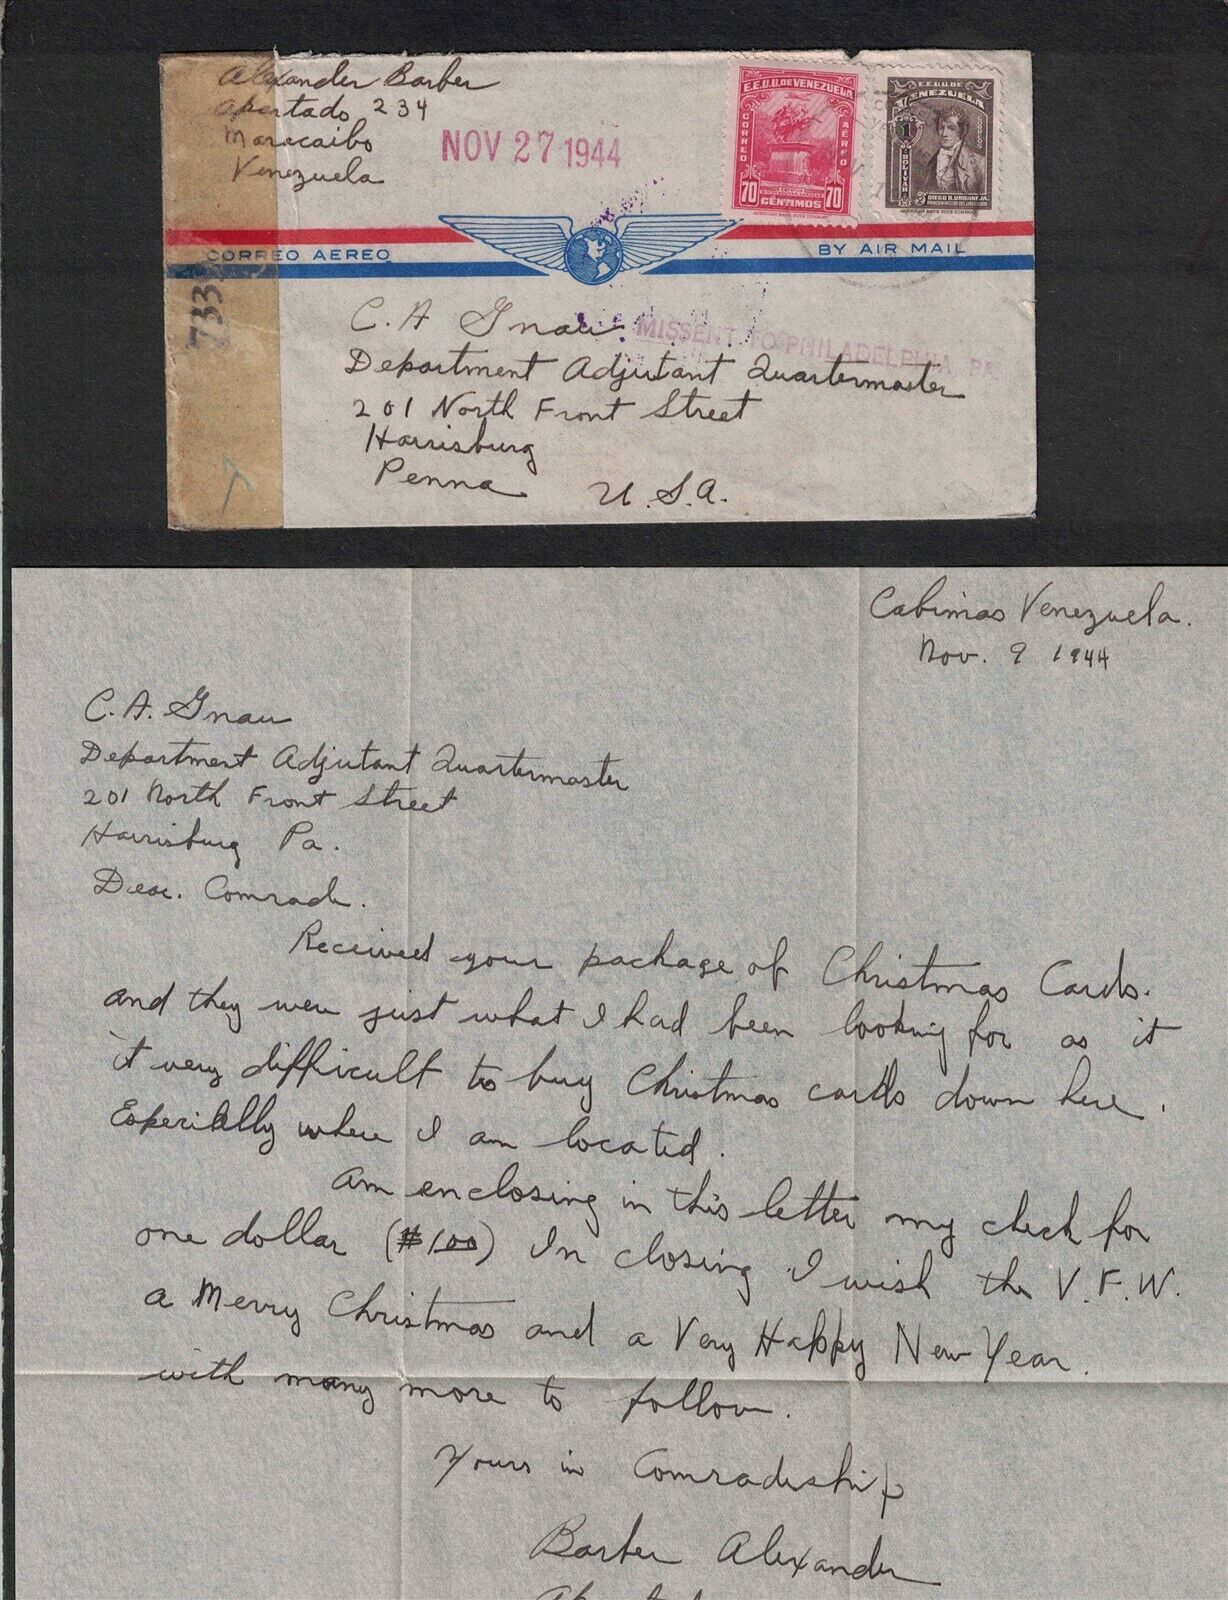 Alexander Barber
Apartado 234
Maracaibo
Venezuela
NOV 27 1944
E.E.U.U. DE VENEZUELA
CORREO
AÉREO
70
70
CÉNTIMOS
AMERICAN BANK NOTE COMPANY
E.E.U.U. DE
VENEZUELA
CORREOS
1
BOLIVAR
DIEGO B. URBANEJA
AMERICAN BANK NOTE COMPANY
CORREO AEREO
BY AIR MAIL
733
7
MISSENT TO PHILADELPHIA, PA.
C. A Gnau
Department Adjutant Quartermaster
201 North Front Street
Harrisburg
Penna U.S.A.
Cabimas Venezuela.
Nov. 9 1944
C. A. Gnau
Department Adjutant Quartermaster
201 North Front Street
Harrisburg Pa.
Dear. Comrade.
Received your package of Christmas Cards.
and they were just what I had been looking for as it
it very difficult to buy Christmas cards down here.
Especially where I am located.
Am enclosing in this letter my check for
one dollar ($1.00) In closing I wish the V.F.W.
a Merry Christmas and a Very Happy New Year.
with many more to follow.
Yours in Comradeship
Barber Alexander